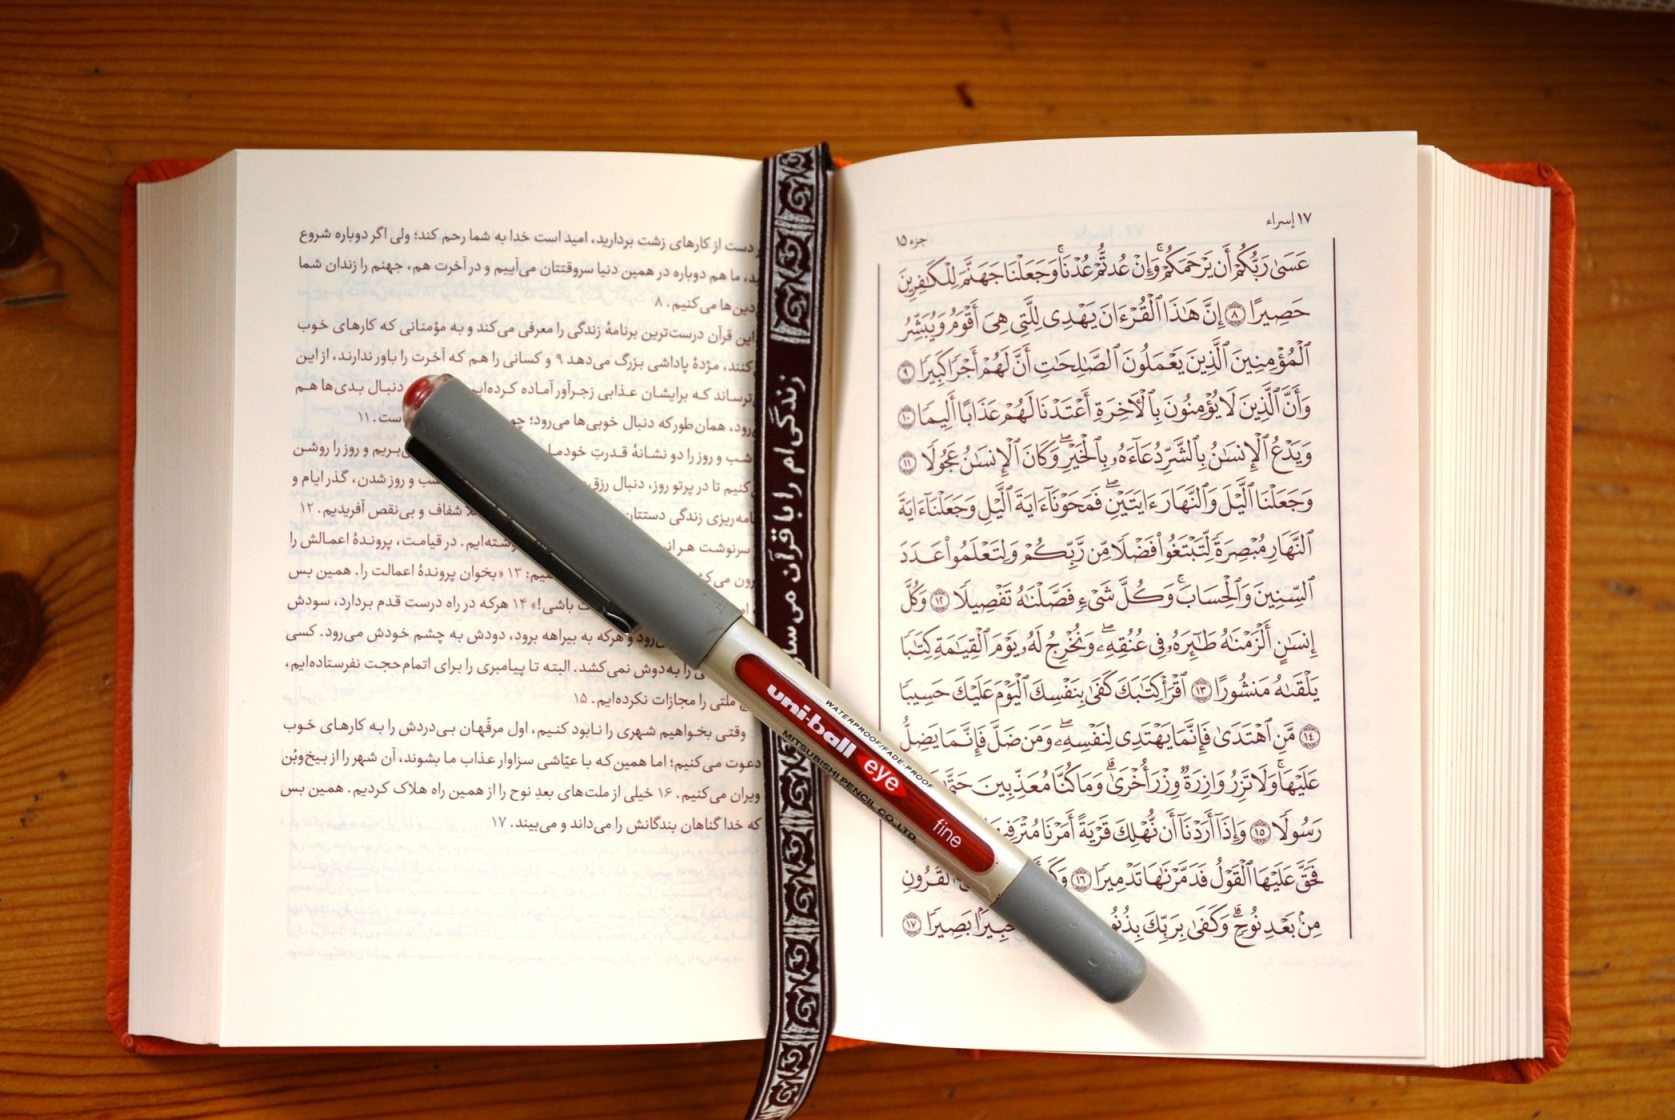 ١٧ إسراء
جزء ١٥
عَسَىٰ رَبُّكُمْ أَن يَرْحَمَكُمْ ۚ وَإِنْ عُدتُّمْ عُدْنَا ۘ وَجَعَلْنَا جَهَنَّمَ لِلْكَٰفِرِينَ
حَصِيرًا ٨ إِنَّ هَٰذَا ٱلْقُرْءَانَ يَهْدِى لِلَّتِى هِىَ أَقْوَمُ وَيُبَشِّرُ
ٱلْمُؤْمِنِينَ ٱلَّذِينَ يَعْمَلُونَ ٱلصَّٰلِحَٰتِ أَنَّ لَهُمْ أَجْرًا كَبِيرًا ٩
وَأَنَّ ٱلَّذِينَ لَا يُؤْمِنُونَ بِٱلْءَاخِرَةِ أَعْتَدْنَا لَهُمْ عَذَابًا أَلِيمًا ١٠
وَيَدْعُ ٱلْإِنسَٰنُ بِٱلشَّرِّ دُعَآءَهُۥ بِٱلْخَيْرِ ۖ وَكَانَ ٱلْإِنسَٰنُ عَجُولًا ١١
وَجَعَلْنَا ٱلَّيْلَ وَٱلنَّهَارَ ءَايَتَيْنِ ۖ فَمَحَوْنَآ ءَايَةَ ٱلَّيْلِ وَجَعَلْنَآ ءَايَةَ
ٱلنَّهَارِ مُبْصِرَةً لِّتَبْتَغُوا۟ فَضْلًا مِّن رَّبِّكُمْ وَلِتَعْلَمُوا۟ عَدَدَ
ٱلسِّنِينَ وَٱلْحِسَابَ ۚ وَكُلَّ شَىْءٍ فَصَّلْنَٰهُ تَفْصِيلًا ١٢ وَكُلَّ
إِنسَٰنٍ أَلْزَمْنَٰهُ طَٰٓئِرَهُۥ فِى عُنُقِهِۦ ۖ وَنُخْرِجُ لَهُۥ يَوْمَ ٱلْقِيَٰمَةِ كِتَٰبًا
يَلْقَىٰهُ مَنشُورًا ١٣ ٱقْرَأْ كِتَٰبَكَ كَفَىٰ بِنَفْسِكَ ٱلْيَوْمَ عَلَيْكَ حَسِيبًا
١٤ مَّنِ ٱهْتَدَىٰ فَإِنَّمَا يَهْتَدِى لِنَفْسِهِۦ ۖ وَمَن ضَلَّ فَإِنَّمَا يَضِلُّ
عَلَيْهَا ۚ وَلَا تَزِرُ وَازِرَةٌ وِزْرَ أُخْرَىٰ ۗ وَمَا كُنَّا مُعَذِّبِينَ
رَسُولًا ١٥ وَإِذَآ أَرَدْنَآ أَن نُّهْلِكَ قَرْيَةً أَمَرْنَا
فَحَقَّ عَلَيْهَا ٱلْقَوْلُ فَدَمَّرْنَٰهَا تَدْمِيرًا ١٦
مِنۢ بَعْدِ نُوحٍ ۗ وَكَفَىٰ بِرَبِّكَ بَصِيرًا ١٧
دست از کارهای زشت بردارید، امید است خدا به شما رحم کند؛ ولی اگر دوباره شروع
ما هم دوباره در همین دنیا سروقتتان می‌آییم و در آخرت هم، جهنم را زندان شما
می‌کنیم. ۸
این قرآن درست‌ترین برنامهٔ زندگی را معرفی می‌کند و به مؤمنانی که کارهای خوب
مژدهٔ پاداشی بزرگ می‌دهد ۹ و کسانی را هم که آخرت را باور ندارند، از این
که برایشان عذابی زجرآور آماده دنبال بدی‌ها هم
همان طور که دنبال خوبی‌ها می‌رود؛ است. ۱۱
شب و روز را دو نشانهٔ قدرتِ و روز را روشن
تا در پرتو روز، دنبال و روز شدن، گذر ایام و
ریزی زندگی شفاف و بی‌نقص آفریدیم. ۱۲
سرنوشت در قیامت، پروندهٔ اعمالش را
۱۳ «بخوان پروندهٔ اعمالت را. همین بس
باشی!» ۱۴ هرکه در راه درست قدم بردارد، سودش
و هرکه به بیراهه برود، دودش به چشم خودش می‌رود. کسی
را به‌دوش نمی‌کشد. البته تا پیامبری را برای اتمام‌حجت نفرستاده‌ایم،
ملتی را مجازات نکرده‌ایم. ۱۵
وقتی بخواهیم شهری را نابود کنیم، اول مرفّهان بی‌دردش را به کارهای خوب
دعوت می‌کنیم؛ اما همین‌که با عیّاشی سزاوار عذاب ما بشوند، آن شهر را از بیخ‌وبُن
ویران می‌کنیم. ۱۶ خیلی از ملت‌های بعدِ نوح را از همین راه هلاک کردیم. همین بس
که خدا گناهان بندگانش را می‌داند و می‌بیند. ۱۷
زندگی‌ام را با قرآن
uni-ball eye fine
WATERPROOF/FADE-PROOF
MITSUBISHI PENCIL CO., LTD.